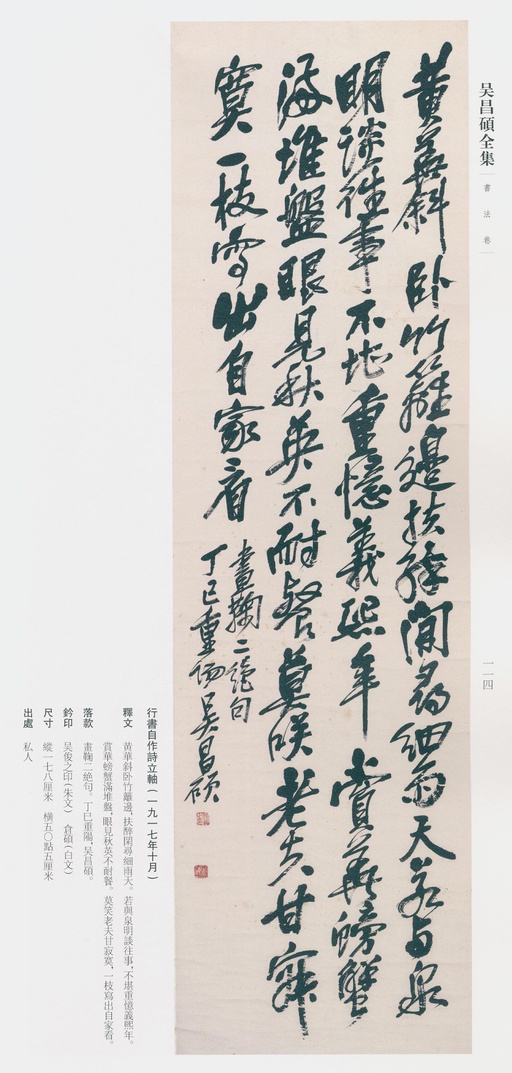 吴昌碩全集
書法卷
一一四
黄華斜卧竹籬邊扶醉閒尋細雨天若与泉
明談往事不堪重憶義熙年賞華螃蟹
滿堆盤眼見秋英不耐餐莫咲老夫甘寂
寞一枝寫出自家看
畫鞠二絶句
丁巳重陽吴昌碩
行書自作詩立軸（一九一七年十月）
釋文 黄華斜卧竹籬邊，扶醉閑尋細雨天。若與泉明談往事，不堪重憶義熙年。
賞華螃蟹滿堆盤，眼見秋英不耐餐。莫笑老夫甘寂寞，一枝寫出自家看。
落款 畫鞠二絶句。丁巳重陽，吴昌碩。
鈐印 吴俊之印（朱文） 倉碩（白文）
尺寸 縱一七八厘米 橫五〇點五厘米
出處 私人